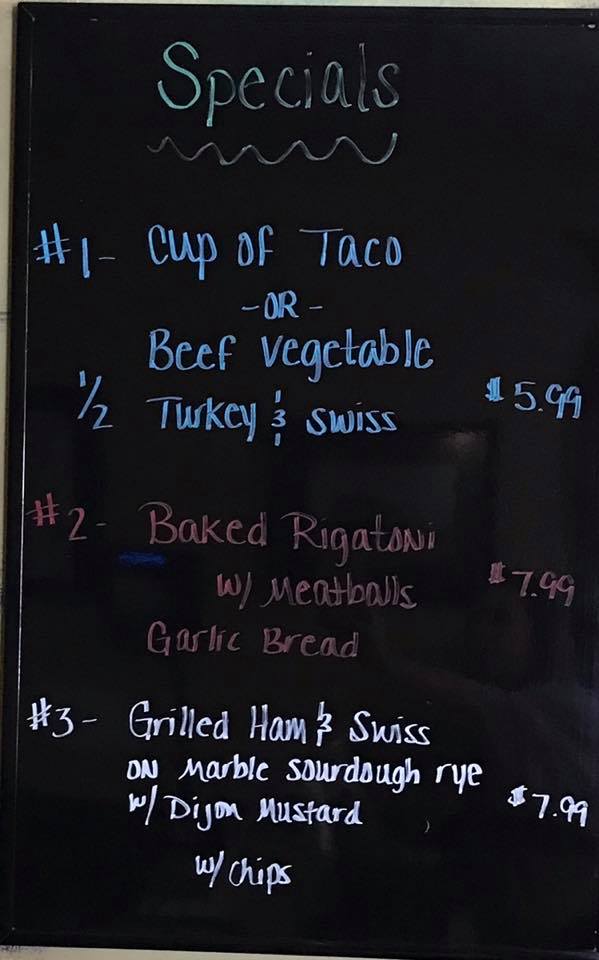 Specials
#1- Cup of Taco
-OR-
Beef Vegetable
1/2 Turkey & Swiss $5.99
#2- Baked Rigatoni
w/ Meatballs $7.99
Garlic Bread
#3- Grilled Ham & Swiss
on Marble Sourdough rye
w/ Dijon Mustard $7.99
w/ Chips